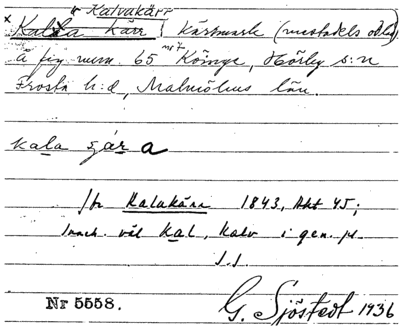 Kalvakärr
× Kalla kärr, kärrmark (mestadels odlad)
å fig. num. 65 m⁰7 Köinge, Hörby s:n
Frosta h:d, Malmöhus län.
kala ʒára
/br Kalakärr 1843, Akt 45;
Inneh. väl Kal, Kalv i gen. pl.
J. J.
Nr 5558.
G. Sjöstedt 1936